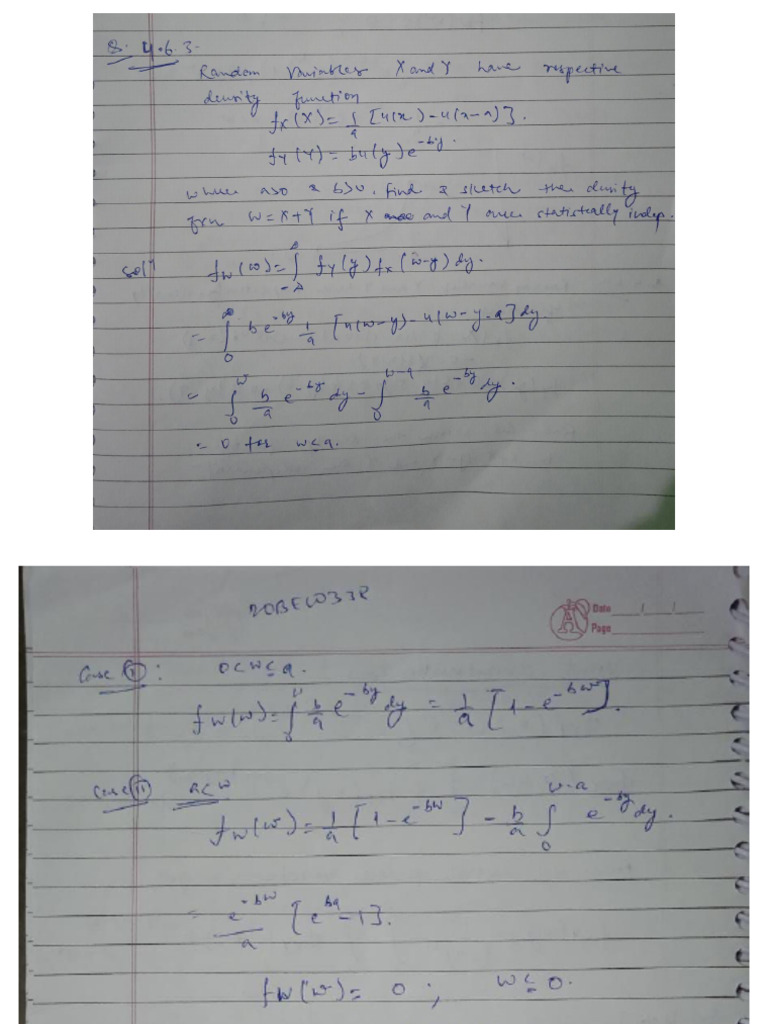 Q. 4.6.3.
Random Variables X and Y have respective
density function
fx(X) = 1/a [u(x) - u(x-a)].
fy(Y) = bu(y) e^-by.
where a>0 & b>0. Find & sketch the density
W = X+Y if X and Y are statistically indep.
Sol^n
fw(w) = ∫_-∞^∞ fy(y) fx(w-y) dy.
= ∫_0^∞ b e^-by 1/a [u(w-y) - u(w-y-a)] dy
= ∫_0^w b/a e^-by dy - ∫_0^w-a b/a e^-by dy.
= 0 for w≤a.
Date / /
Page
Case I : 0<w≤a.
fw(w) = ∫_0^w b/a e^-by dy = 1/a [1-e^-bw].
Case II a<w
fw(w) = 1/a [1-e^-bw] - b/a ∫_0^w-a e^-by dy.
= e^-bw/a [e^ba - 1].
fw(w) = 0 ; w≤0.